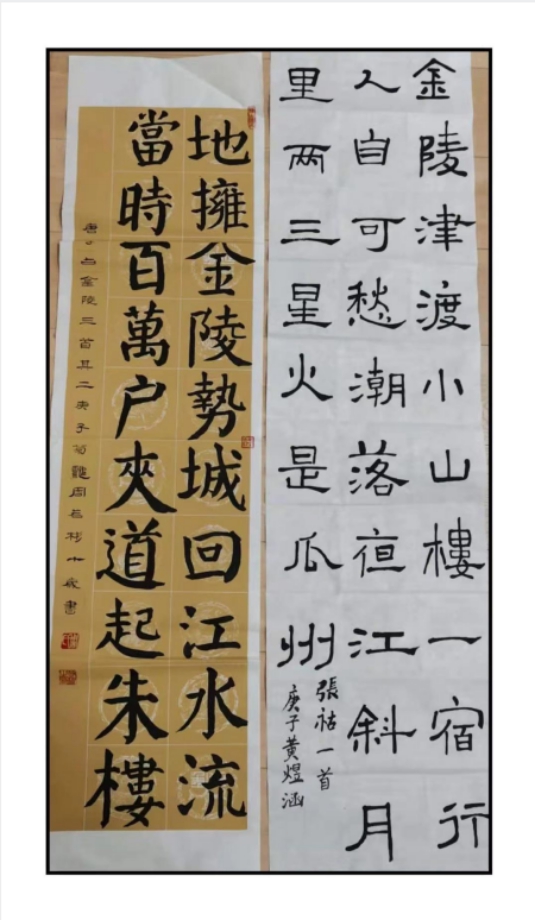 金陵津渡小山樓一宿行
人自可愁潮落亱江斜月
里两三星火是瓜州
張祜一首
庚子黄煜涵
地擁金陵勢城回江水流
當時百萬户夾道起朱樓
唐白金陵三首其二庚子周十歲書